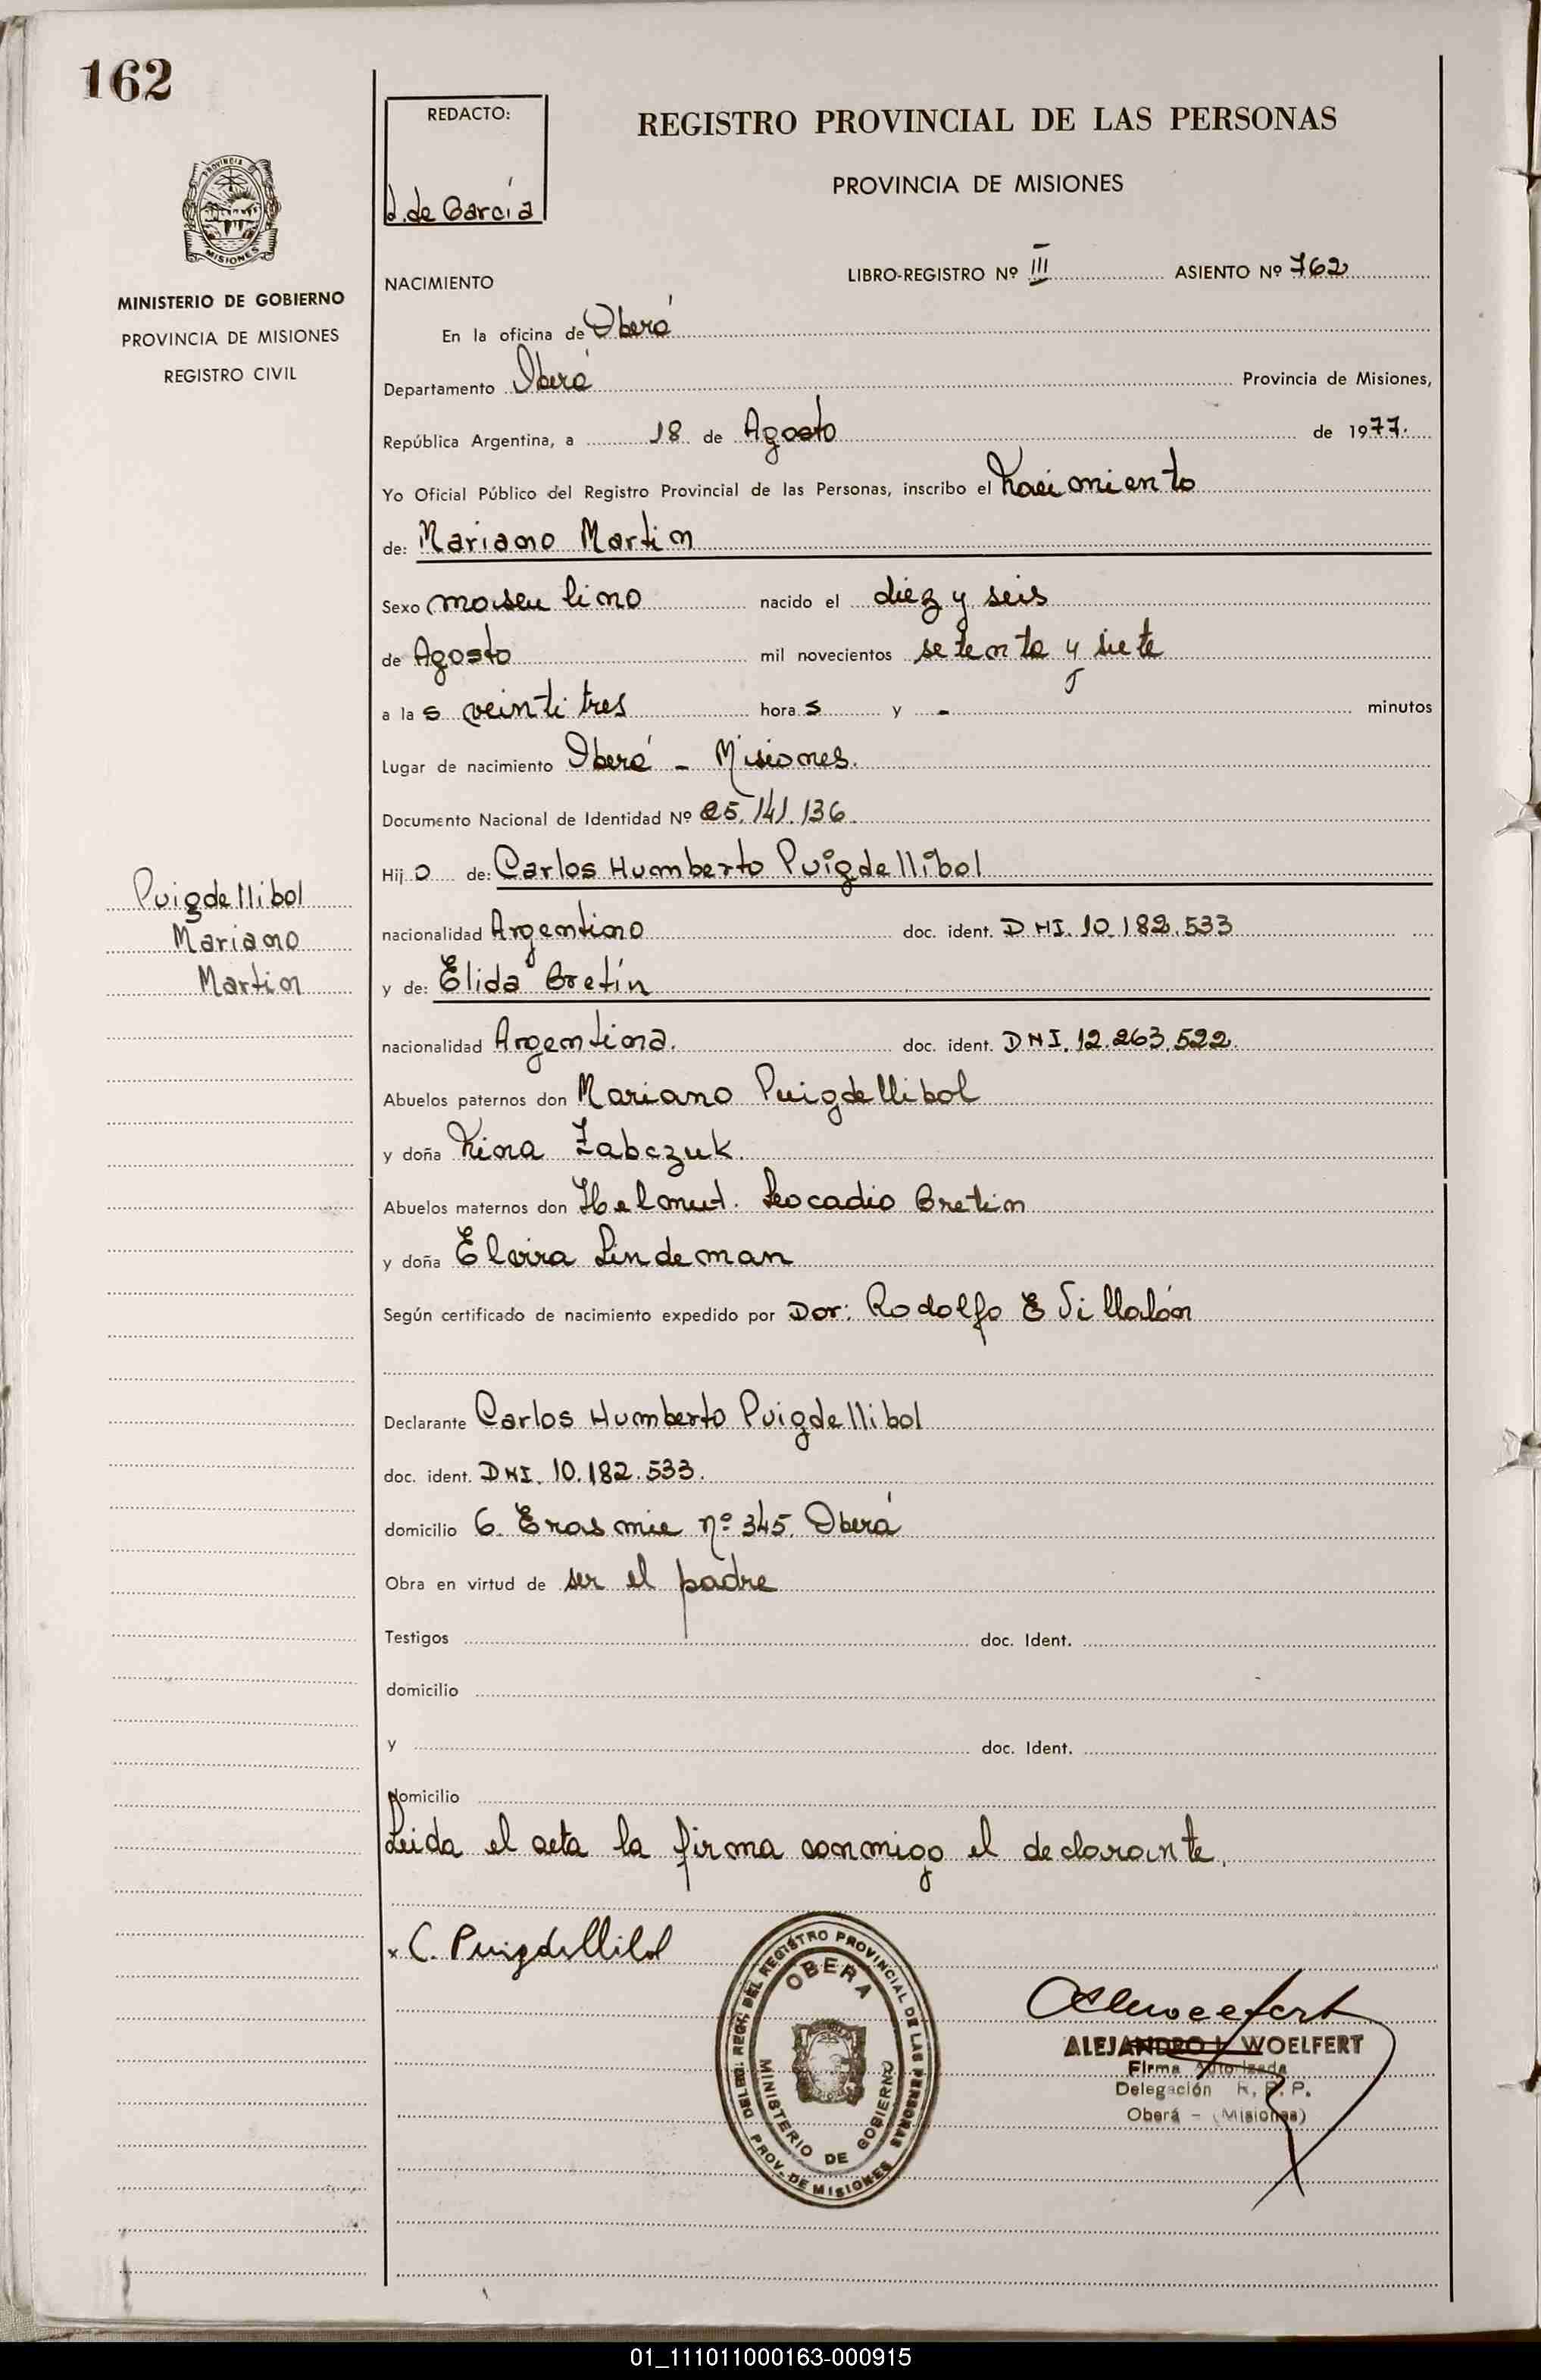 162
REDACTO:
d. de García
REGISTRO PROVINCIAL DE LAS PERSONAS
PROVINCIA DE MISIONES
PROVINCIA
MISIONES
MINISTERIO DE GOBIERNO
PROVINCIA DE MISIONES
REGISTRO CIVIL
LIBRO-REGISTRO Nº III ASIENTO Nº 762
NACIMIENTO
En la oficina de Oberá
Departamento Oberá Provincia de Misiones,
República Argentina, a 18 de Agosto de 1977.
Yo Oficial Público del Registro Provincial de las Personas, inscribo el Nacimiento
de: Mariano Martin
Sexo masculino nacido el diez y seis
de Agosto mil novecientos setenta y siete
a la s veintitres hora s y - minutos
Lugar de nacimiento Oberá - Misiones.
Documento Nacional de Identidad Nº 25.141.136.
Hij o de: Carlos Humberto Puigdellibol
Puigdellibol
Mariano
Martin
nacionalidad Argentino doc. ident. DNI. 10.182.533
y de: Elida Bretín
nacionalidad Argentina. doc. ident. DNI. 12.263.522.
Abuelos paternos don Mariano Puigdellibol
y doña Nina Zabczuk.
Abuelos maternos don Helmut. Leocadio Bretin
y doña Elvira Lindeman
Según certificado de nacimiento expedido por Dor: Rodolfo E Villalón
Declarante Carlos Humberto Puigdellibol
doc. ident. DNI. 10.182.533.
domicilio G. Erasmie nº 345. Oberá
Obra en virtud de ser el padre
Testigos doc. Ident.
domicilio
y doc. Ident.
domicilio
Leida el acta la firma conmigo el declarante.
x C. Puigdellibol
DELEG. REGI. DEL REGISTRO PROVINCIAL DE LAS PERSONAS
OBERA
MINISTERIO DE GOBIERNO
PROV. DE MISIONES
ALEJANDRO L. WOELFERT
Firma Autorizada
Delegación R. P. P.
Oberá - (Misiones)
01_111011000163-000915